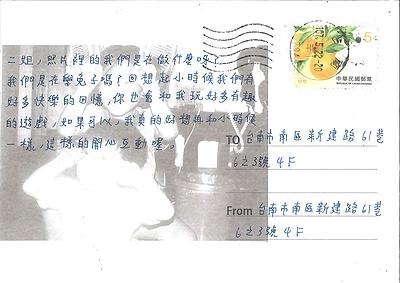 二姐，照片裡的我們是在做什麼呀？
我們是在學兔子嗎？回想起小時候我們有
好多快樂的回憶，你也會和我玩好多有趣
的遊戲，如果可以，我真的好想再和小時候
一樣，這樣的開心互動喔。
5
中華民國郵票
TO 台南市南區新建路61巷
6之3號4F
From 台南市南區新建路61巷
6之3號4F